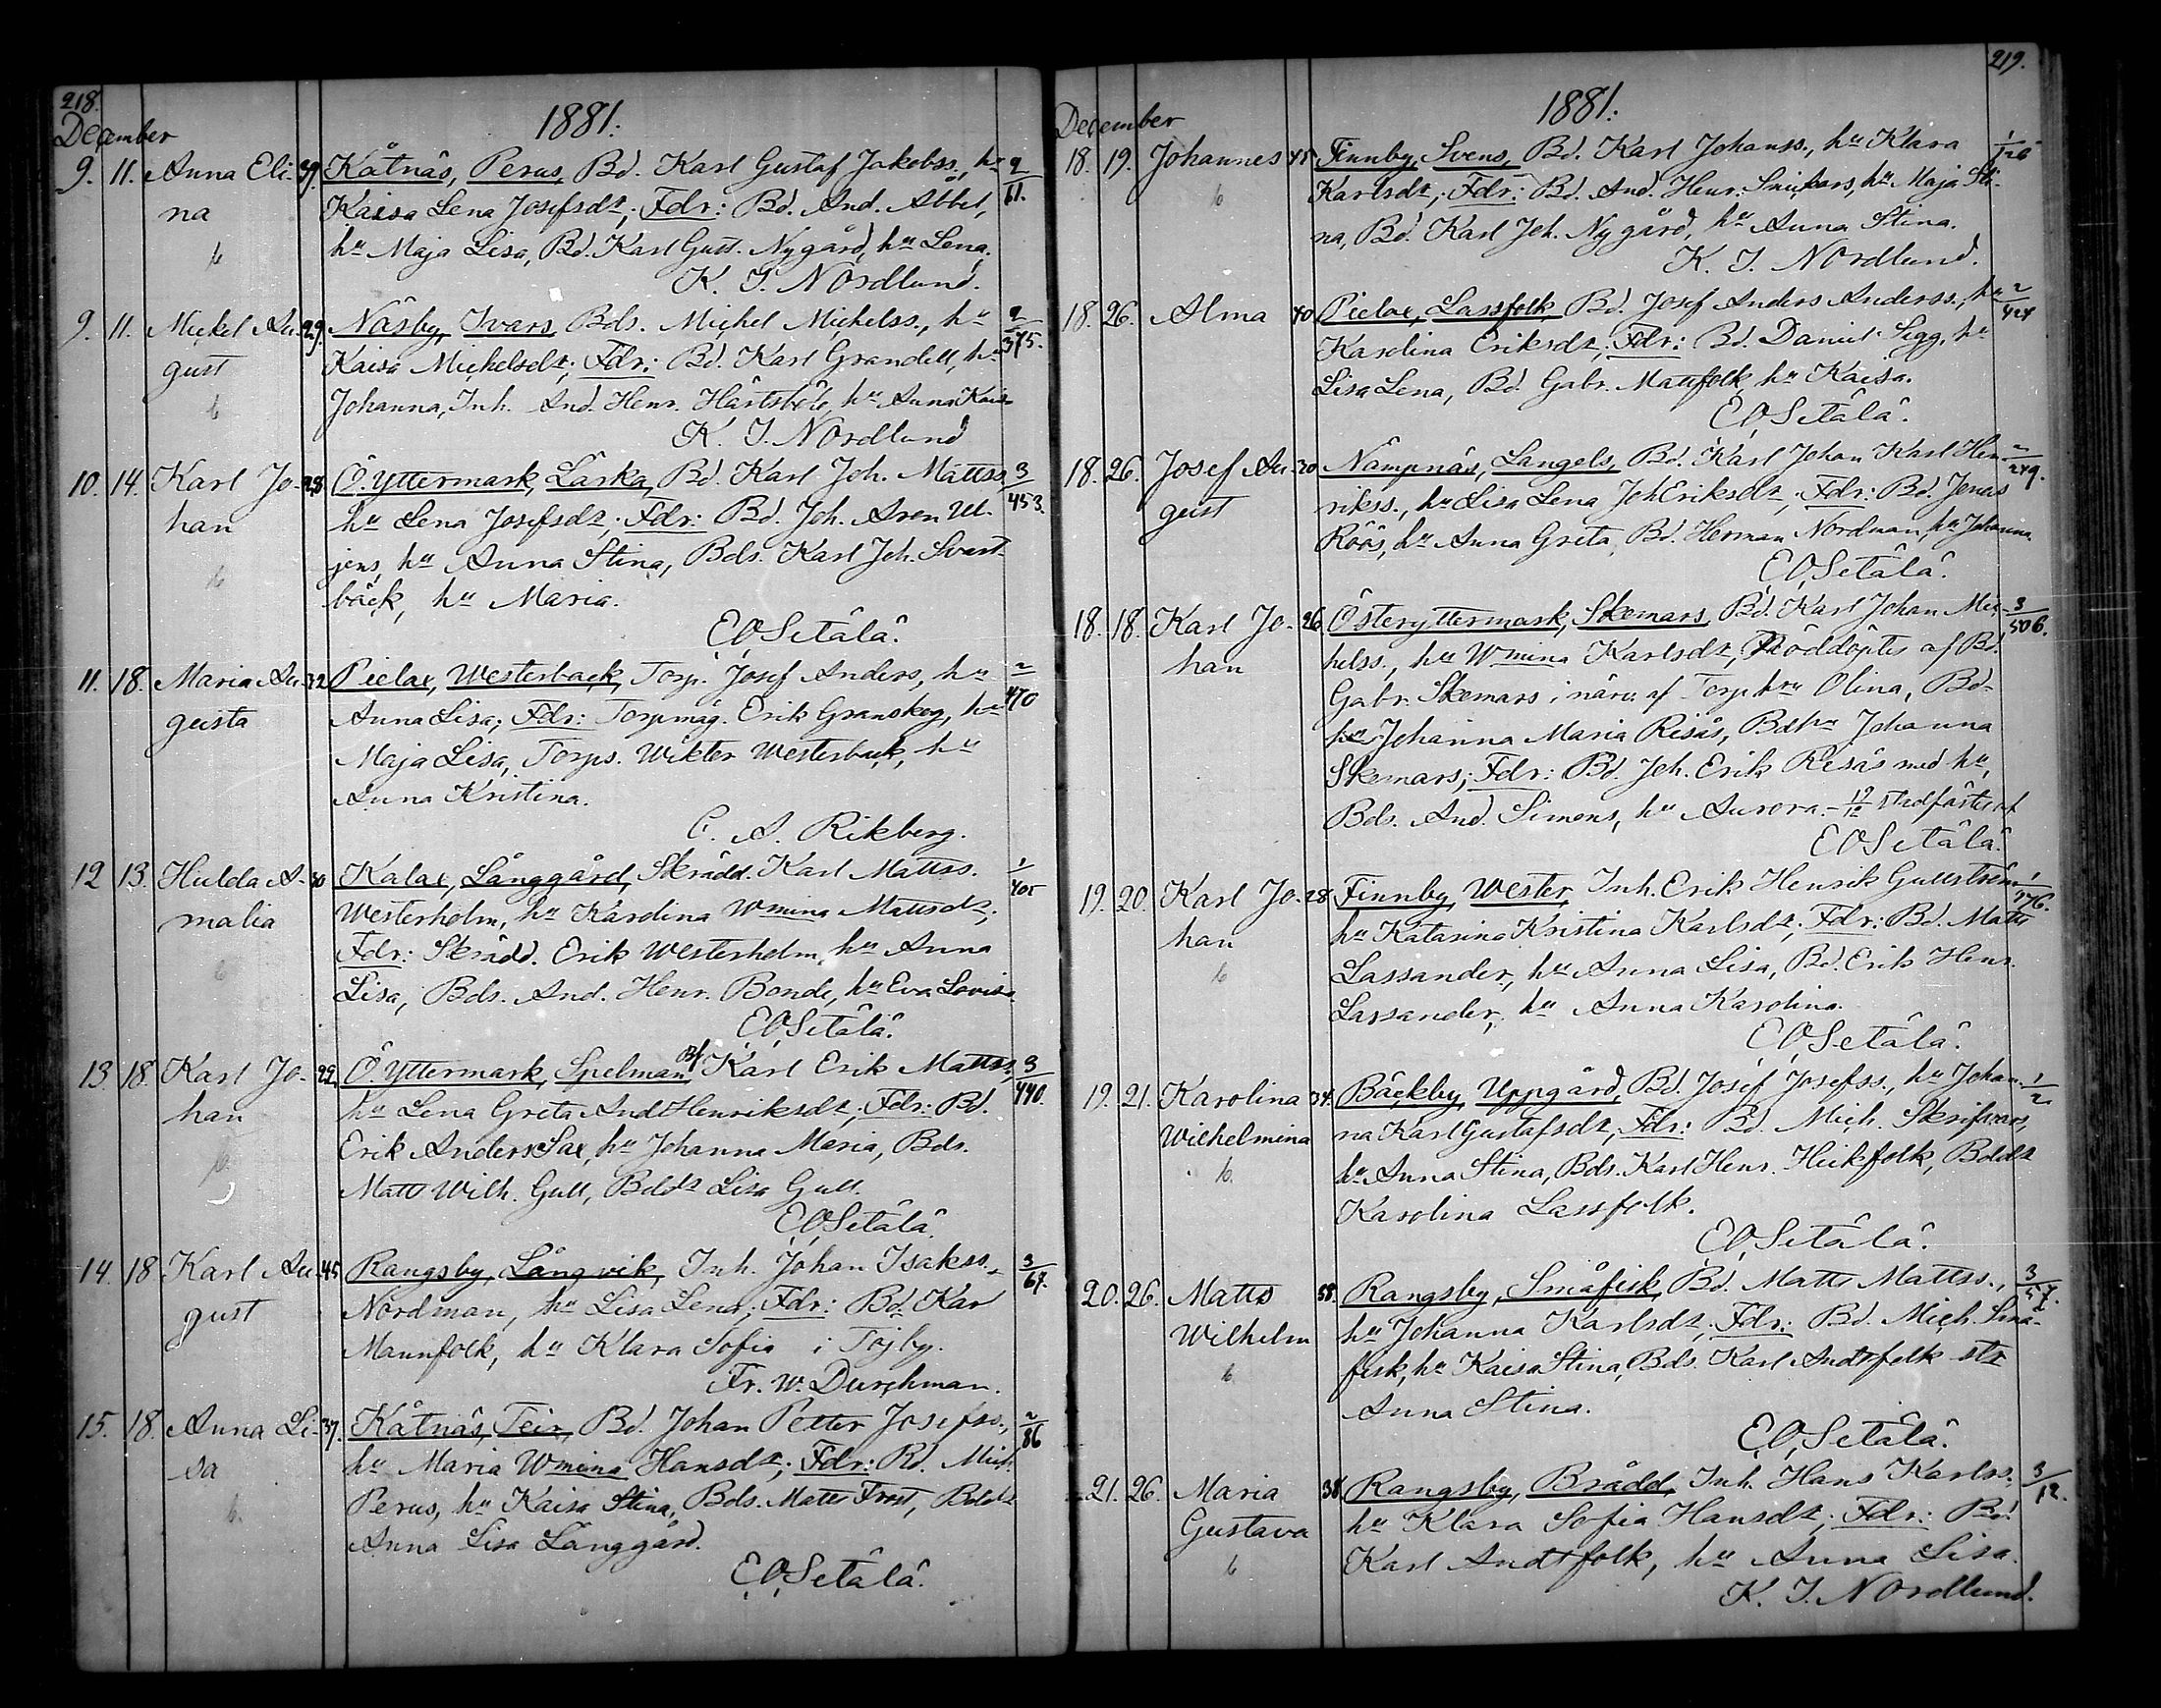 218.
December 1881.
9. 11. Anna Eli- 39. Kåtnäs, Perus, Bd. Karl Gustaf Jakobss., hu 2/61.
na Kaisa Lena Josefsdr; Fdr: Bd. And. Abbel,
hu Maja Lisa, Bd. Karl Gust. Nygård, hu Lena.
K. J. Nordlund.
9. 11. Mickel Au- 29. Näsby, Ivars, Bds. Michel Michelss., hu 2/375.
gust Kaisa Michelsdr; Fdr: Bd. Karl Grandell, hu
Johanna, Inh. And. Henr. Härtsböle, hu Anna Kais-
K. J. Nordlund
10. 14. Karl Jo- 28 Ö. Yttermark, Lärka, Bd. Karl Joh. Mattss. 3/453.
han hu Lena Josefsdr; Fdr: Bd. Joh. Aron Ul-
jens, hu Anna Stina, Bds. Karl Joh. Svart-
bäck, hu Maria.
E O Setälä.
11. 18. Maria Au- 32 Pielax, Westerback, Torp. Josef Anders, hu 2/470
gusta Anna Lisa; Fdr: Torpmåg. Erik Granskog, hu
Maja Lisa, Torps. Wikter Westerback, hu
Anna Kristina.
C. A. Rikberg.
12 13. Hulda A- 30 Kalax, Långgård, Skrädd. Karl Mattss. 1/405
malia Westerholm, hu Karolina Wmina Mattsdr;
Fdr: Skrädd. Erik Westerholm, hu Anna
Lisa, Bds. And. Henr. Bonde, hu Eva Lovisa.
E O Setälä.
13. 18. Karl Jo- 22. Ö. Yttermark, Spelman, Bd. Karl Erik Mattss., 3/440.
han hu Lena Greta And Henriksdr; Fdr: Bd.
Erik Anders Sax, hu Johanna Maria, Bds.
Matts Wilh. Gull, Bddr Lisa Gull.
E O Setälä.
14. 18 Karl Au- 45 Rangsby, Långvik, Inh. Johan Isakss. 3/67.
gust Nordman, hu Lisa Lena; Fdr: Bd. Karl
Mannfolk, hu Klara Sofia i Töjby.
Fr. W. Durchman.
15. 18. Anna Li- 37. Kåtnäs, Teir, Bd. Johan Petter Josefss., 2/86
sa hu Maria Wmina Hansdr; Fdr: Bd. Mich.
Perus, hu Kaisa Stina, Bds. Matts Frost, Bddr
Anna Lisa Långgård.
E O Setälä.
219.
December 1881.
18. 19. Johannes 45 Finnby, Svens, Bd. Karl Johanss., hu Klara
Karlsdr; Fdr: Bd. And. Henr. hu Maja Sti-
na, Bd. Karl Joh. Nygård, hu Anna Stina.
K. J. Nordlund.
18. 26. Alma 40 Pielax, Lassfolk, Bd. Josef Anders Anderss., hu 2/424
Karolina Eriksdr; Fdr: Bd. Daniel Segg, hu
Lisa Lena, Bd. Gabr. Mattfolk, hu Kaisa.
E O Setälä.
18. 26. Josef Au- 30 Nämpnäs, Langels, Bd. Karl Johan Karl Hen- 2/249.
gust rikss., hu Lisa Lena Joh Eriksdr; Fdr: Bd. Jonas
Röös, hu Anna Greta, Bd. Herman Nordman, hu Johanna
E O Setälä.
18. 18. Karl Jo- 26 Österyttermark, Skomars, Bd. Karl Johan Mic- 3/506.
han helss., hu Wmina Karlsdr, Nöddöptes af Bd.
Gabr. Skomars i närv. af Torphru Olina, Bd-
hu Johanna Maria Risås, Bdhu Johanna
Skomars; Fdr: Bd. Joh. Erik Risås med hu,
Bds. And. Simons, hu Aurora. - 19/12 stadfästes af
E O Setälä.
19. 20. Karl Jo- 28 Finnby, Wester, Inh. Erik Henrik Gullström 1/176.
han hu Katarina Kristina Karlsdr; Fdr: Bd. Matts
Lassander, hu Anna Lisa, Bd. Erik Henr.
Lassander, hu Anna Karolina.
E O Setälä.
19. 21. Karolina 34. Bäckby, Uppgård, Bd. Josef Josefss., hu Johan- 1/2
Wilhelmina na Karl Gustafsdr, Fdr: Bd. Mich. Skrifvars,
hu Anna Stina, Bds. Karl Henr. Heikfolk, Bddr
Karolina Lassfolk.
E O Setälä.
20. 26. Matts 38. Rangsby, Småfisk, Bd. Matts Mattss., 3/57.
Wilhelm hu Johanna Karlsdr; Fdr: Bd. Mich. Små-
fisk, hu Kaisa Stina, Bds. Karl Andtfolk str
Anna Stina.
E O Setälä.
21. 26. Maria 38 Rangsby, Brådd, Inh. Hans Karlss. 3/12.
Gustava hu Klara Sofia Hansdr; Fdr: Bd.
Karl Andtfolk, hu Anna Lisa.
K. J. Nordlund.